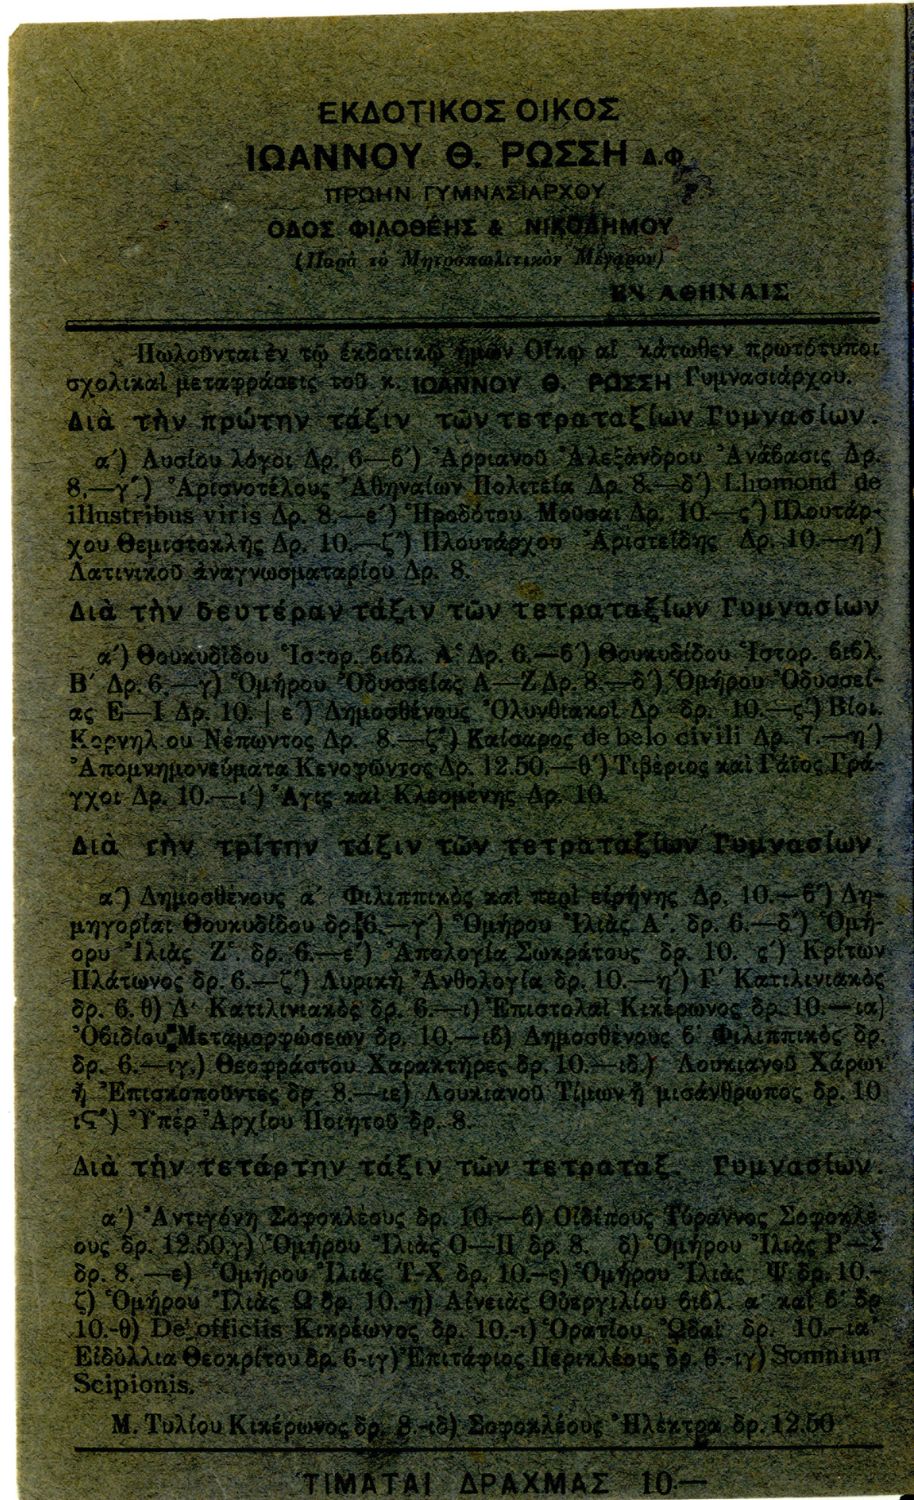 ΕΚΔΟΤΙΚΟΣ ΟΙΚΟΣ
ΙΩΑΝΝΟΥ Θ. ΡΩΣΣΗ Δ.Φ.
ΠΡΩΗΝ ΓΥΜΝΑΣΙΑΡΧΟΥ
ΟΔΟΣ ΦΙΛΟΘΕΗΣ & ΝΙΚΟΔΗΜΟΥ
(Παρὰ τὸ Μητροπωλιτικὸν Μέγαρον)
ΕΝ ΑΘΗΝΑΙΣ
Πωλοῦνται ἐν τῷ ἐκδοτικῷ ἡμῶν Οἴκῳ αἱ κάτωθεν πρωτότυποι
σχολικαὶ μεταφράσεις τοῦ κ. ΙΩΑΝΝΟΥ Θ. ΡΩΣΣΗ Γυμνασιάρχου.
Διὰ τὴν πρώτην τάξιν τῶν τετραταξίων Γυμνασίων.
α΄) Λυσίου λόγοι Δρ. 6—β΄) Ἀρριανοῦ Ἀλεξάνδρου Ἀνάβασις Δρ.
8.—γ΄) Ἀρισνοτέλους Ἀθηναίων Πολιτεία Δρ. 8.—δ΄) Lhomond de
illustribus viris Δρ. 8.—ε΄) Ἡροδότου Μοῦσαι Δρ. 10.—ς΄) Πλουτάρ-
χου Θεμιστοκλῆς Δρ. 10.—ζ΄) Πλουτάρχου Ἀριστείδης Δρ. 10.—η΄)
Λατινικοῦ ἀναγνωσματαρίου Δρ. 8.
Διὰ τὴν δευτέραν τάξιν τῶν τετραταξίων Γυμνασίων
α΄) Θουκυδίδου Ἱστορ. βιβλ. Α΄ Δρ. 6.—β΄) Θουκυδίδου Ἱστορ. βιβλ.
Β΄ Δρ. 6.—γ) Ὁμήρου Ὀδυσσείας Α—Ζ Δρ. 8.—δ΄) Ὁμήρου Ὀδυσσεί-
ας Ε—Ι Δρ. 10. | ε΄) Δημοσθένους Ὀλυνθιακοὶ Δρ δρ. 10.—ς΄) Βίοι
Κορνηλ ου Νέπωντος Δρ. 8.—ζ΄) Καίσαρος de belo civili Δρ. 7.—η΄)
Ἀπομνημονεύματα Κενοφῶντος Δρ. 12.50.—θ΄) Τιβέριος καὶ Γάϊος Γρά-
γχοι Δρ. 10.—ι΄) Ἄγις καὶ Κλεομένης Δρ. 10.
Διὰ τὴν τρίτην τάξιν τῶν τετραταξίων Γυμνασίων.
α΄) Δημοσθένους α΄ Φιλιππικὸς καὶ περὶ εἰρήνης Δρ. 10.—β΄) Δη-
μηγορίαι Θουκυδίδου δρ. 6.—γ΄) Ὁμήρου Ἰλιὰς Α΄. δρ. 6.—δ΄) Ὁμή-
ορυ Ἰλιὰς Ζ΄. δρ. 6.—ε΄) Ἀπολογία Σωκράτους δρ. 10. ς΄) Κρίτων
Πλάτωνος δρ. 6.—ζ΄) Λυρικὴ Ἀνθολογία δρ. 10.—η΄) Γ΄ Κατιλινιακὸς
δρ. 6. θ) Δ΄ Κατιλινιακὸς δρ. 6.—ι) Ἐπιστολαὶ Κικέρωνος δρ. 10.—ια)
Ὀβιδίου Μεταμορφώσεων δρ. 10.—ιβ) Δημοσθένους β΄ Φιλιππικὸς δρ.
δρ. 6.—ιγ.) Θεοφράστου Χαρακτῆρες δρ. 10.—ιδ.) Λουκιανοῦ Χάρων
ἢ Ἐπισκοποῦντες δρ. 8.—ιε) Λουκιανοῦ Τίμων ἢ μισάνθρωπος δρ. 10
ιϚ΄) Ὑπὲρ Ἀρχίου Ποιητοῦ δρ. 8.
Διὰ τὴν τετάρτην τάξιν τῶν τετραταξ. Γυμνασίων.
α΄) Ἀντιγόνη Σοφοκλέους δρ. 10.—β) Οἰδίπους Τύραννος Σοφοκλέ-
ους δρ. 12.50. γ) Ὁμήρου Ἰλιὰς Ο—Π δρ. 8. δ) Ὁμήρου Ἰλιὰς Ρ—Σ
δρ. 8. —ε) Ὁμήρου Ἰλιὰς Τ-Χ δρ. 10.—ς) Ὁμήρου Ἰλιὰς Ψ δρ. 10.-
ζ) Ὁμήρου Ἰλιὰς Ω δρ. 10.-η) Αἰνειὰς Οὐεργιλίου βιβλ. α΄ καὶ β΄ δρ
10.-θ) De officiis Κικρέωνος δρ. 10.-ι) Ὁρατίου Ὠδαὶ δρ. 10.—ια΄
Εἰδύλλια Θεοκρίτου δρ. 6-ιγ) Ἐπιτάφιος Περικλέους δρ. 6.-ιγ) Somnium
Scipionis.
Μ. Τυλίου Κικέρωνος δρ. 8.-ιδ) Σοφοκλέους Ἠλέκτρα δρ. 12.50
ΤΙΜΑΤΑΙ ΔΡΑΧΜΑΣ 10.—